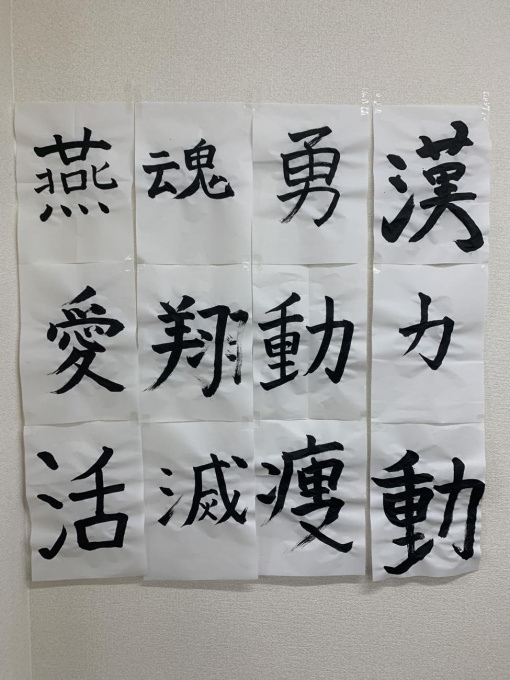 漢力動
勇動痩
魂翔滅
燕愛活